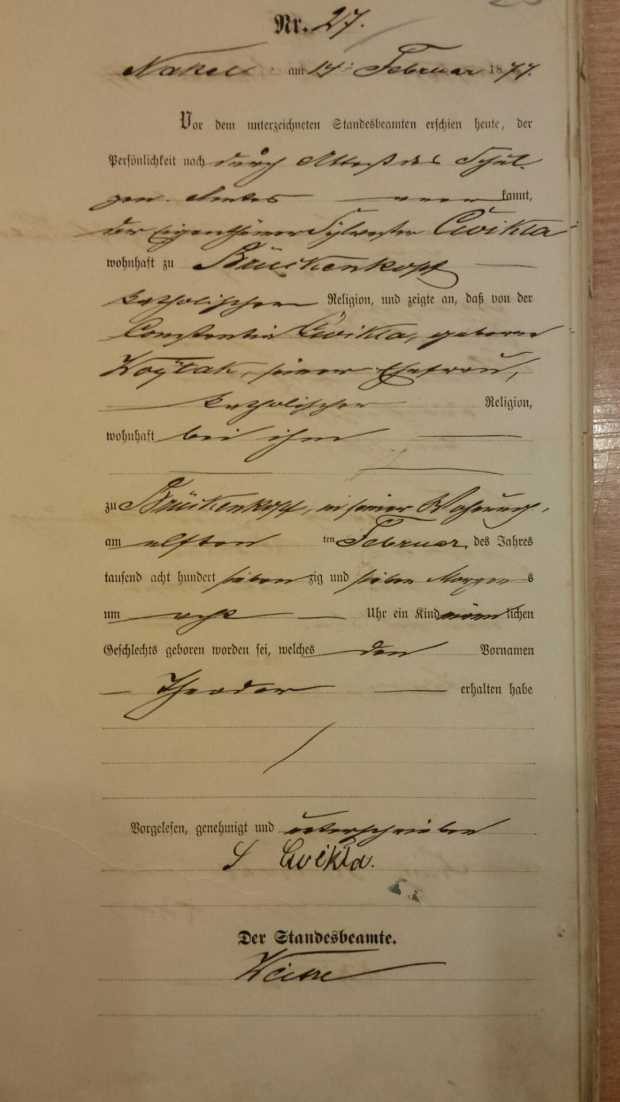 Nr. 27.
Nakel am 14. Februar 1877.
Vor dem unterzeichneten Standesbeamten erschien heute, der
Persönlichkeit nach durch Attest des Schul-
zen-Amtes kannt,
der Eigenthümer Sylvester Ćwikla
wohnhaft zu Brückenkopf
katholischer Religion, und zeigte an, daß von der
Constantia Ćwikla, geborne
Woytak, seiner Ehefrau,
katholischer Religion,
wohnhaft bei ihm
zu Brückenkopf, in seiner Wohnung,
am elften ten Februar, des Jahres
tausend acht hundert siebenzig und sieben Morgens
um acht Uhr ein Kind männlichen
Geschlechts geboren worden sei, welches den Vornamen
Theodor erhalten habe
Vorgelesen, genehmigt und unterschrieben
S Cwikla.
Der Standesbeamte.